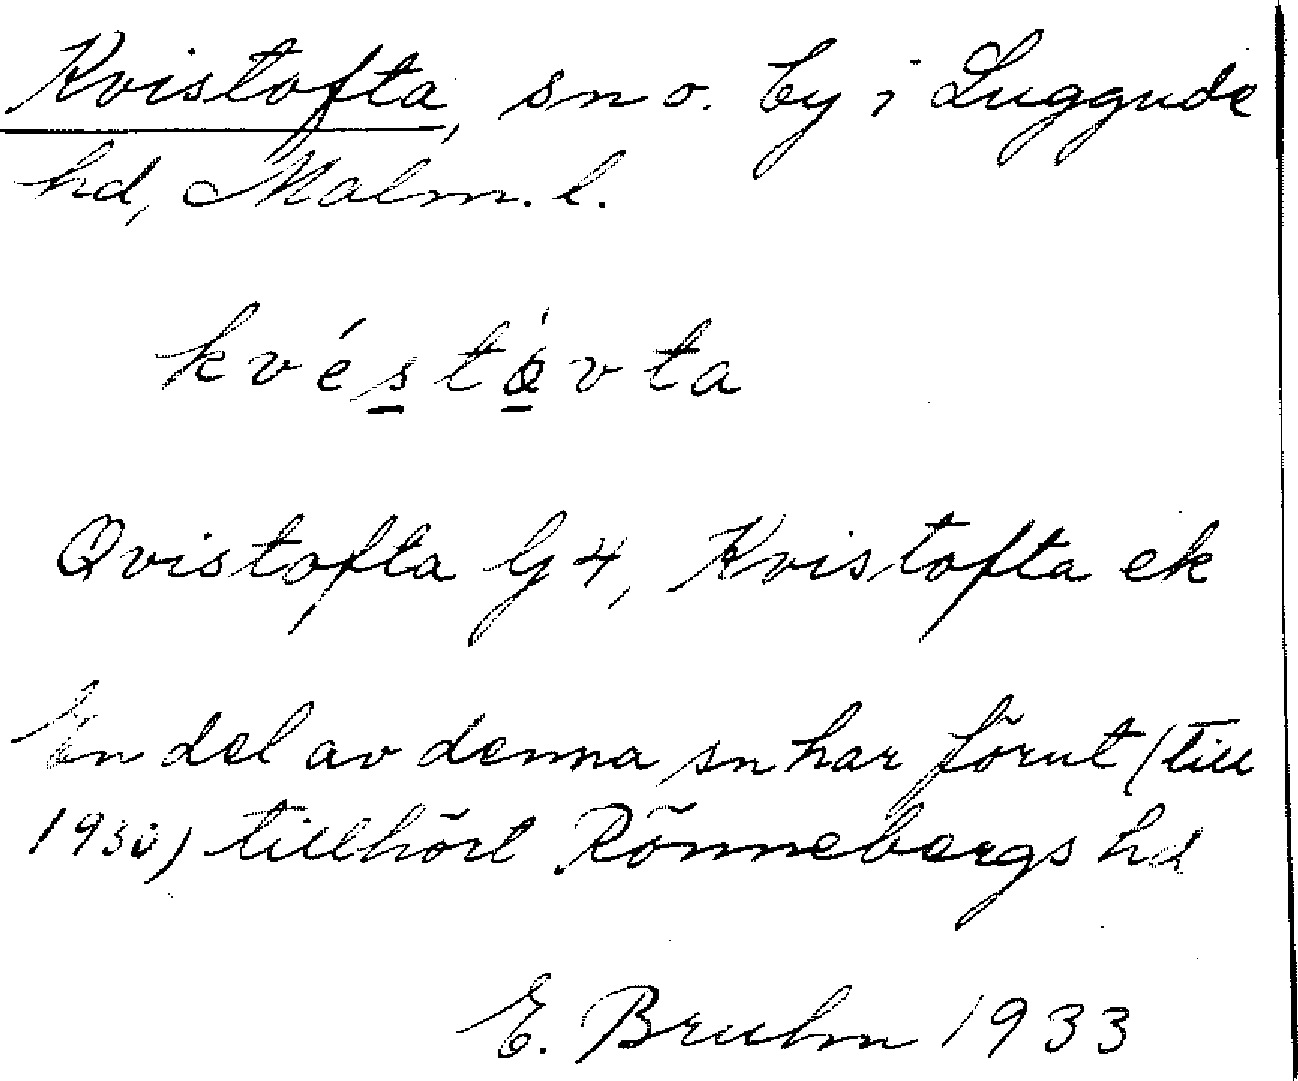 Kvistofta, sn o. by i Luggude
hd, Malm. l.
kvéståvta
Qvistofta G4, Kvistofta ek
En del av denna sn har förut (till
1930) tillhört Rönnebergs hd
E. Bruhn 1933